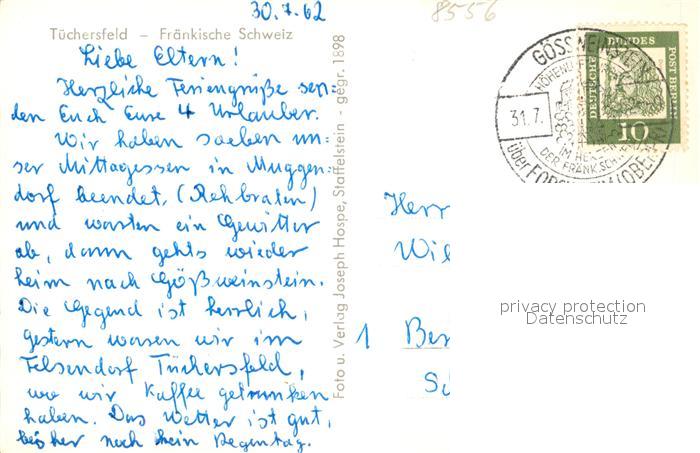 30.7.62
8556
Tüchersfeld – Fränkische Schweiz
Liebe Eltern!
Herzliche Feriengrüße sen-
den Euch Eure 4 Urlauber.
Wir haben soeben un-
ser Mittagessen in Muggen-
dorf beendet, (Rehbraten)
und warten ein Gewitter
ab, dann gehts wieder
heim nach Gößweinstein.
Die Gegend ist herrlich,
gestern waren wir im
Felsendorf Tüchersfeld,
wo wir Kaffee getrunken
haben. Das Wetter ist gut,
bisher noch kein Regentag.
Foto u. Verlag Joseph Hospe, Staffelstein - gegr. 1898
GÖSSWEINSTEIN
31.7.
IM HERZEN
DER FRÄNK. SCHWEIZ
über FORCHHEIM (OBERFR)
DEUTSCHE BUNDES
POST BERLIN
10
Herr
Wil
1 Ber
privacy protection
Datenschutz